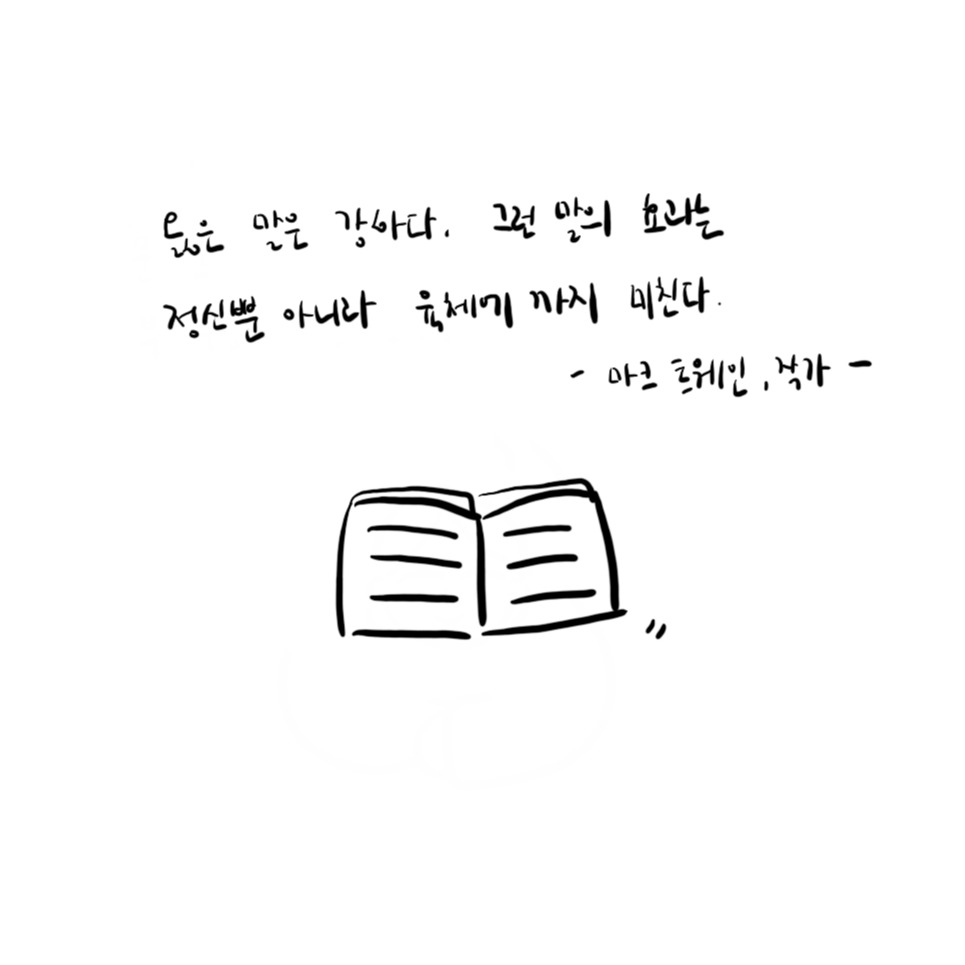 옳은 말은 강하다. 그런 말의 효과는
정신뿐 아니라 육체에 까지 미친다.
- 마크 트웨인, 작가 -